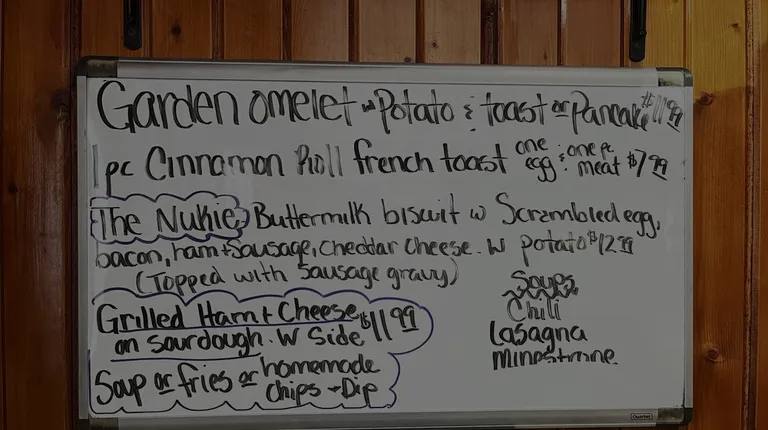 Garden omelet w Potato & toast or Pancake $11.99
1 pc Cinnamon Roll french toast one egg & one pc. meat $7.99
The Nukie, Buttermilk biscuit w Scrambled egg,
bacon, ham + Sausage, cheddar cheese. W potato $12.99
(Topped with Sausage gravy)
Grilled Ham + Cheese $11.99
on Sourdough. W Side
Soup or fries or homemade
chips + Dip
Soups
Chili
Lasagna
Minestrone
Quartet